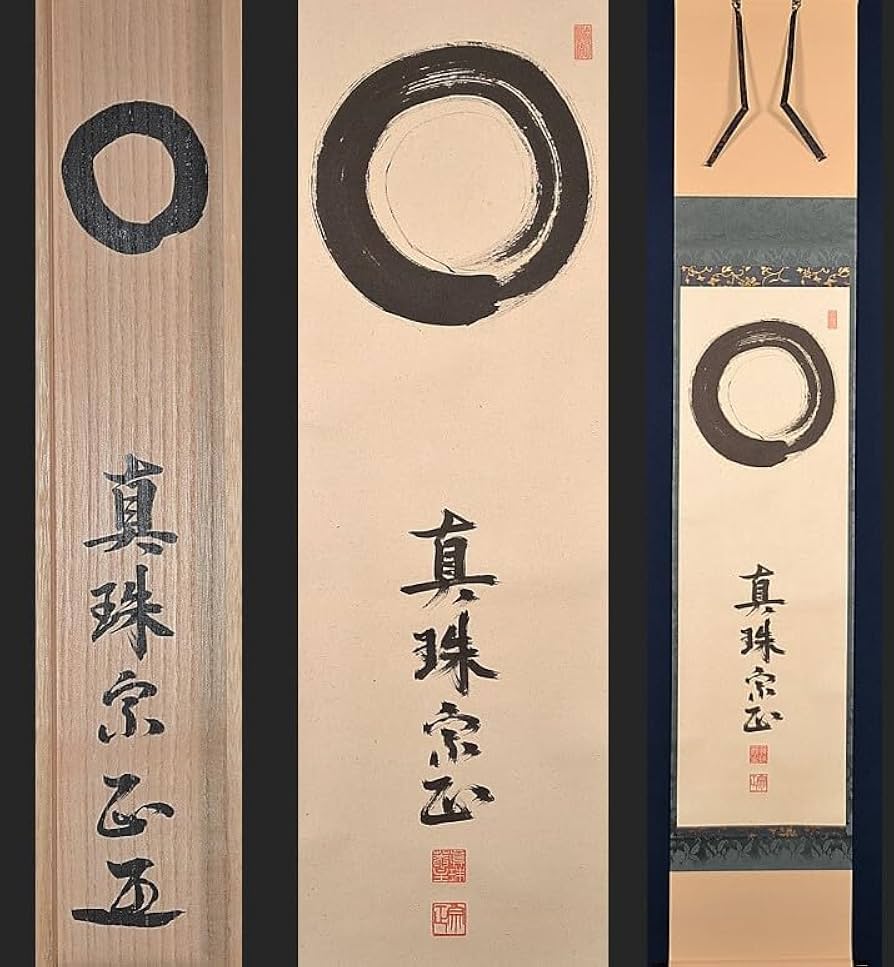 真珠宗正
真珠宗正
宗正
真珠宗正